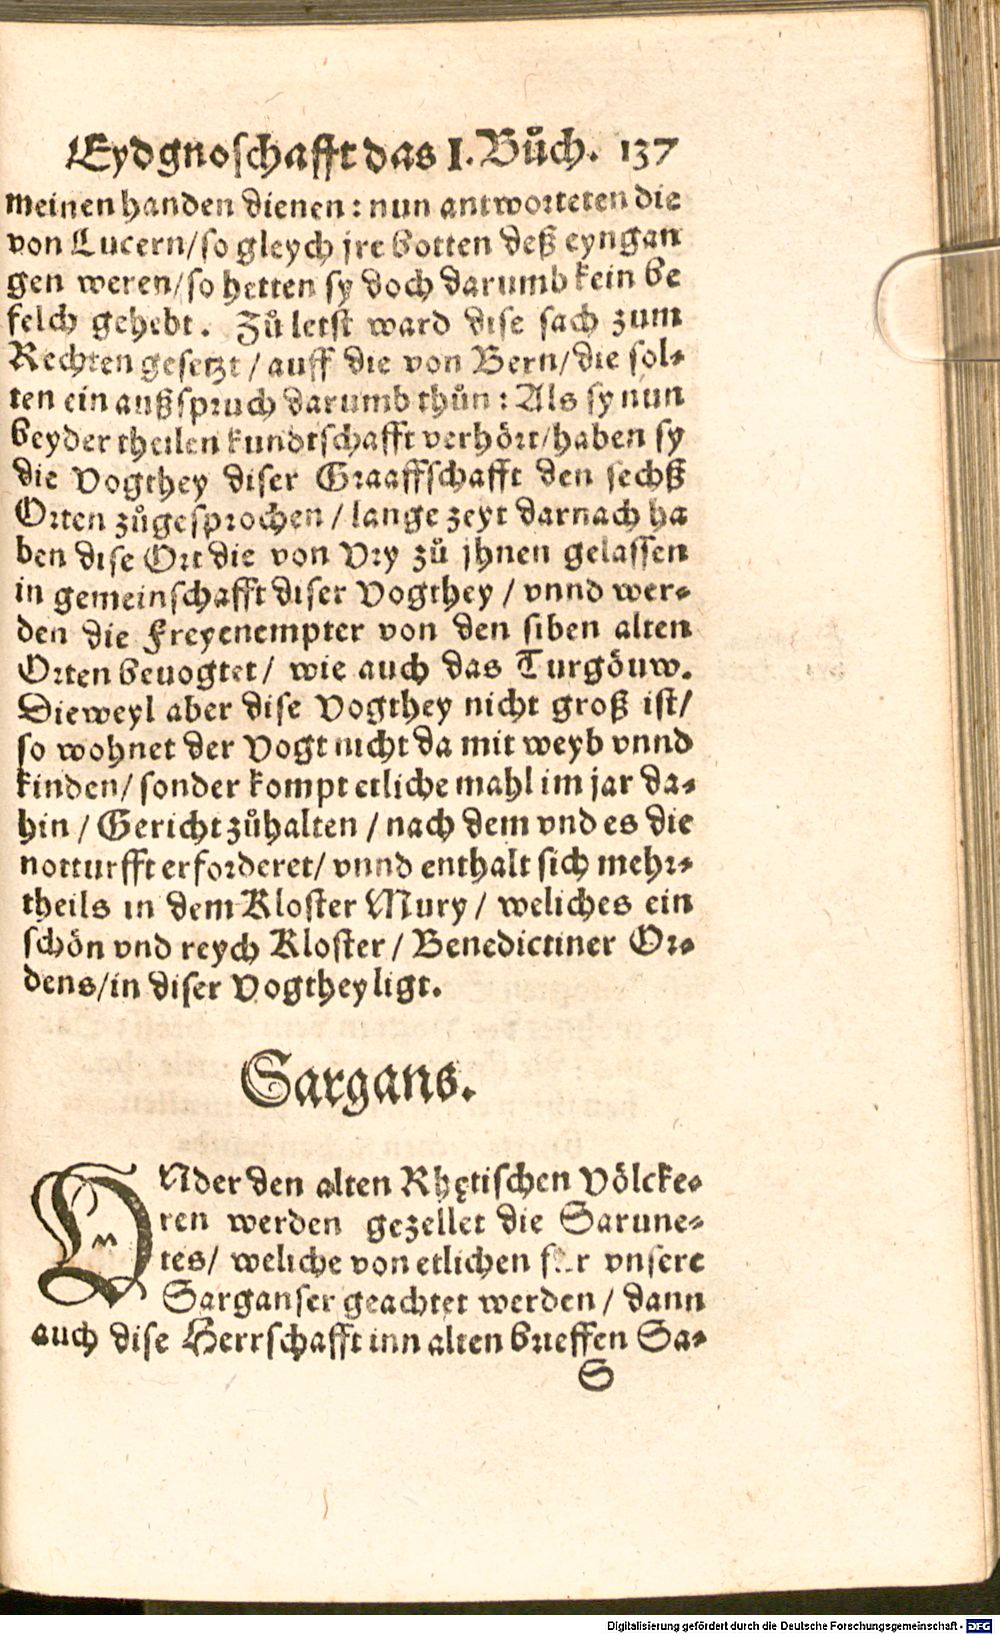 Eydgnoschafft das I. Bůch. 137
meinen handen dienen: nun antworteten die
von Lucern/so gleych jre botten deß eyngan
gen weren/so hetten sy doch darumb kein be
felch gehebt. Zů letst ward dise sach zum
Rechten gesetzt/auff die von Bern/die sol-
ten ein außspruch darumb thůn: Als sy nun
beyder theilen kundtschafft verhört/haben sy
die Vogthey diser Graaffschafft den sechß
Orten zůgesprochen/lange zeyt darnach ha
ben dise Ort die von Vry zů jhnen gelassen
in gemeinschafft diser Vogthey/vnnd wer-
den die Freyenempter von den siben alten
Orten beuogtet/ wie auch das Turgöuw.
Dieweyl aber dise Vogthey nicht groß ist/
so wohnet der Vogt nicht da mit weyb vnnd
kinden/ sonder kompt etliche mahl im jar da-
hin/Gericht zůhalten/nach dem vnd es die
notturfft erforderet/ vnnd enthalt sich mehr-
theils in dem Kloster Mury/ weliches ein
schön vnd reych Kloster/Benedictiner Or-
dens/in diser Vogthey ligt.
Sargans.
VNder den alten Rhętischen Völcke-
ren werden gezellet die Sarune-
tes/ weliche von etlichen vnsere
Sarganser geachtet werden/ dann
auch dise Herrschafft inn alten brieffen Sa-
S
Digitalisierung gefördert durch die Deutsche Forschungsgemeinschaft - DFG